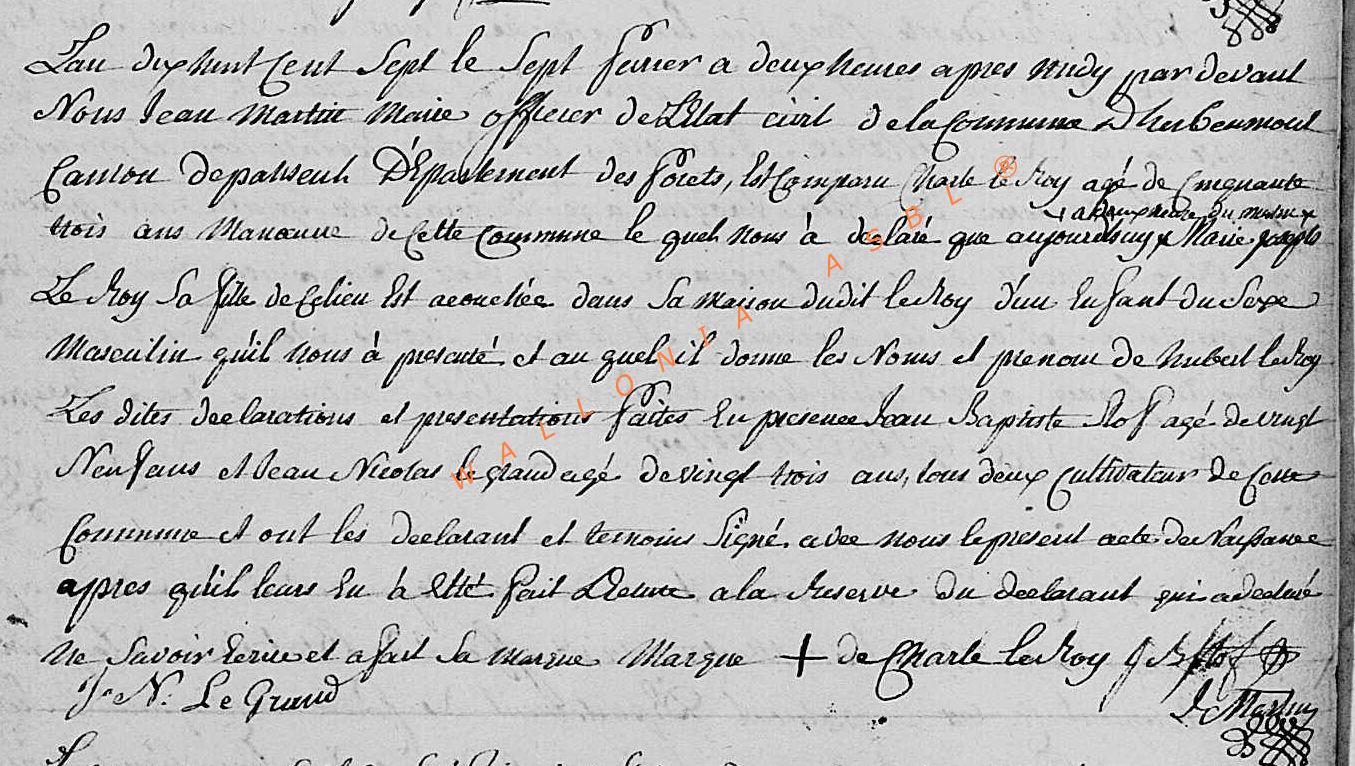 L'an dix huit Cent Sept le Sept fevrier a deux heures apres midy par devant
Nous Jean Martin Marie officier de L'Etat civil de la Commune D'herbeumont
Canton de paliseul. D'Epartement des forets, Est Comparu Charle le Roy agé de Cinquante
+ a deux heure du matin +
trois ans Manoeuve de Cette Commune le quel nous à declaré que aujourdhuy + Marie joseph
Le Roy Sa fille de Celieu Est acouchée dans Sa maison dudit le Roy d'un Enfant du Sexe
Masculin qu'il nous à presenté et au quel il donne les Noms et prenom de hubert le Roy
Les dites declarations et presentations faites En presence Jean Baptiste Stof agé de vingt
Neuf ans et Jean Nicolas le grand agé de vingt trois ans, tous deux Cultivateur de Cette
Commune et ont les declarant et temoins Signé avec nous le present acte de Naissance
apres qu'il leurs En à Etté fait Lecture a la Reserve du declarant qui a declaré
Ne Savoir Ecrire et a fait Sa marque Marque + de Charle le Roy J B Stof
J. N. Le Grand
J Martin
WALLONIA ASBL ®